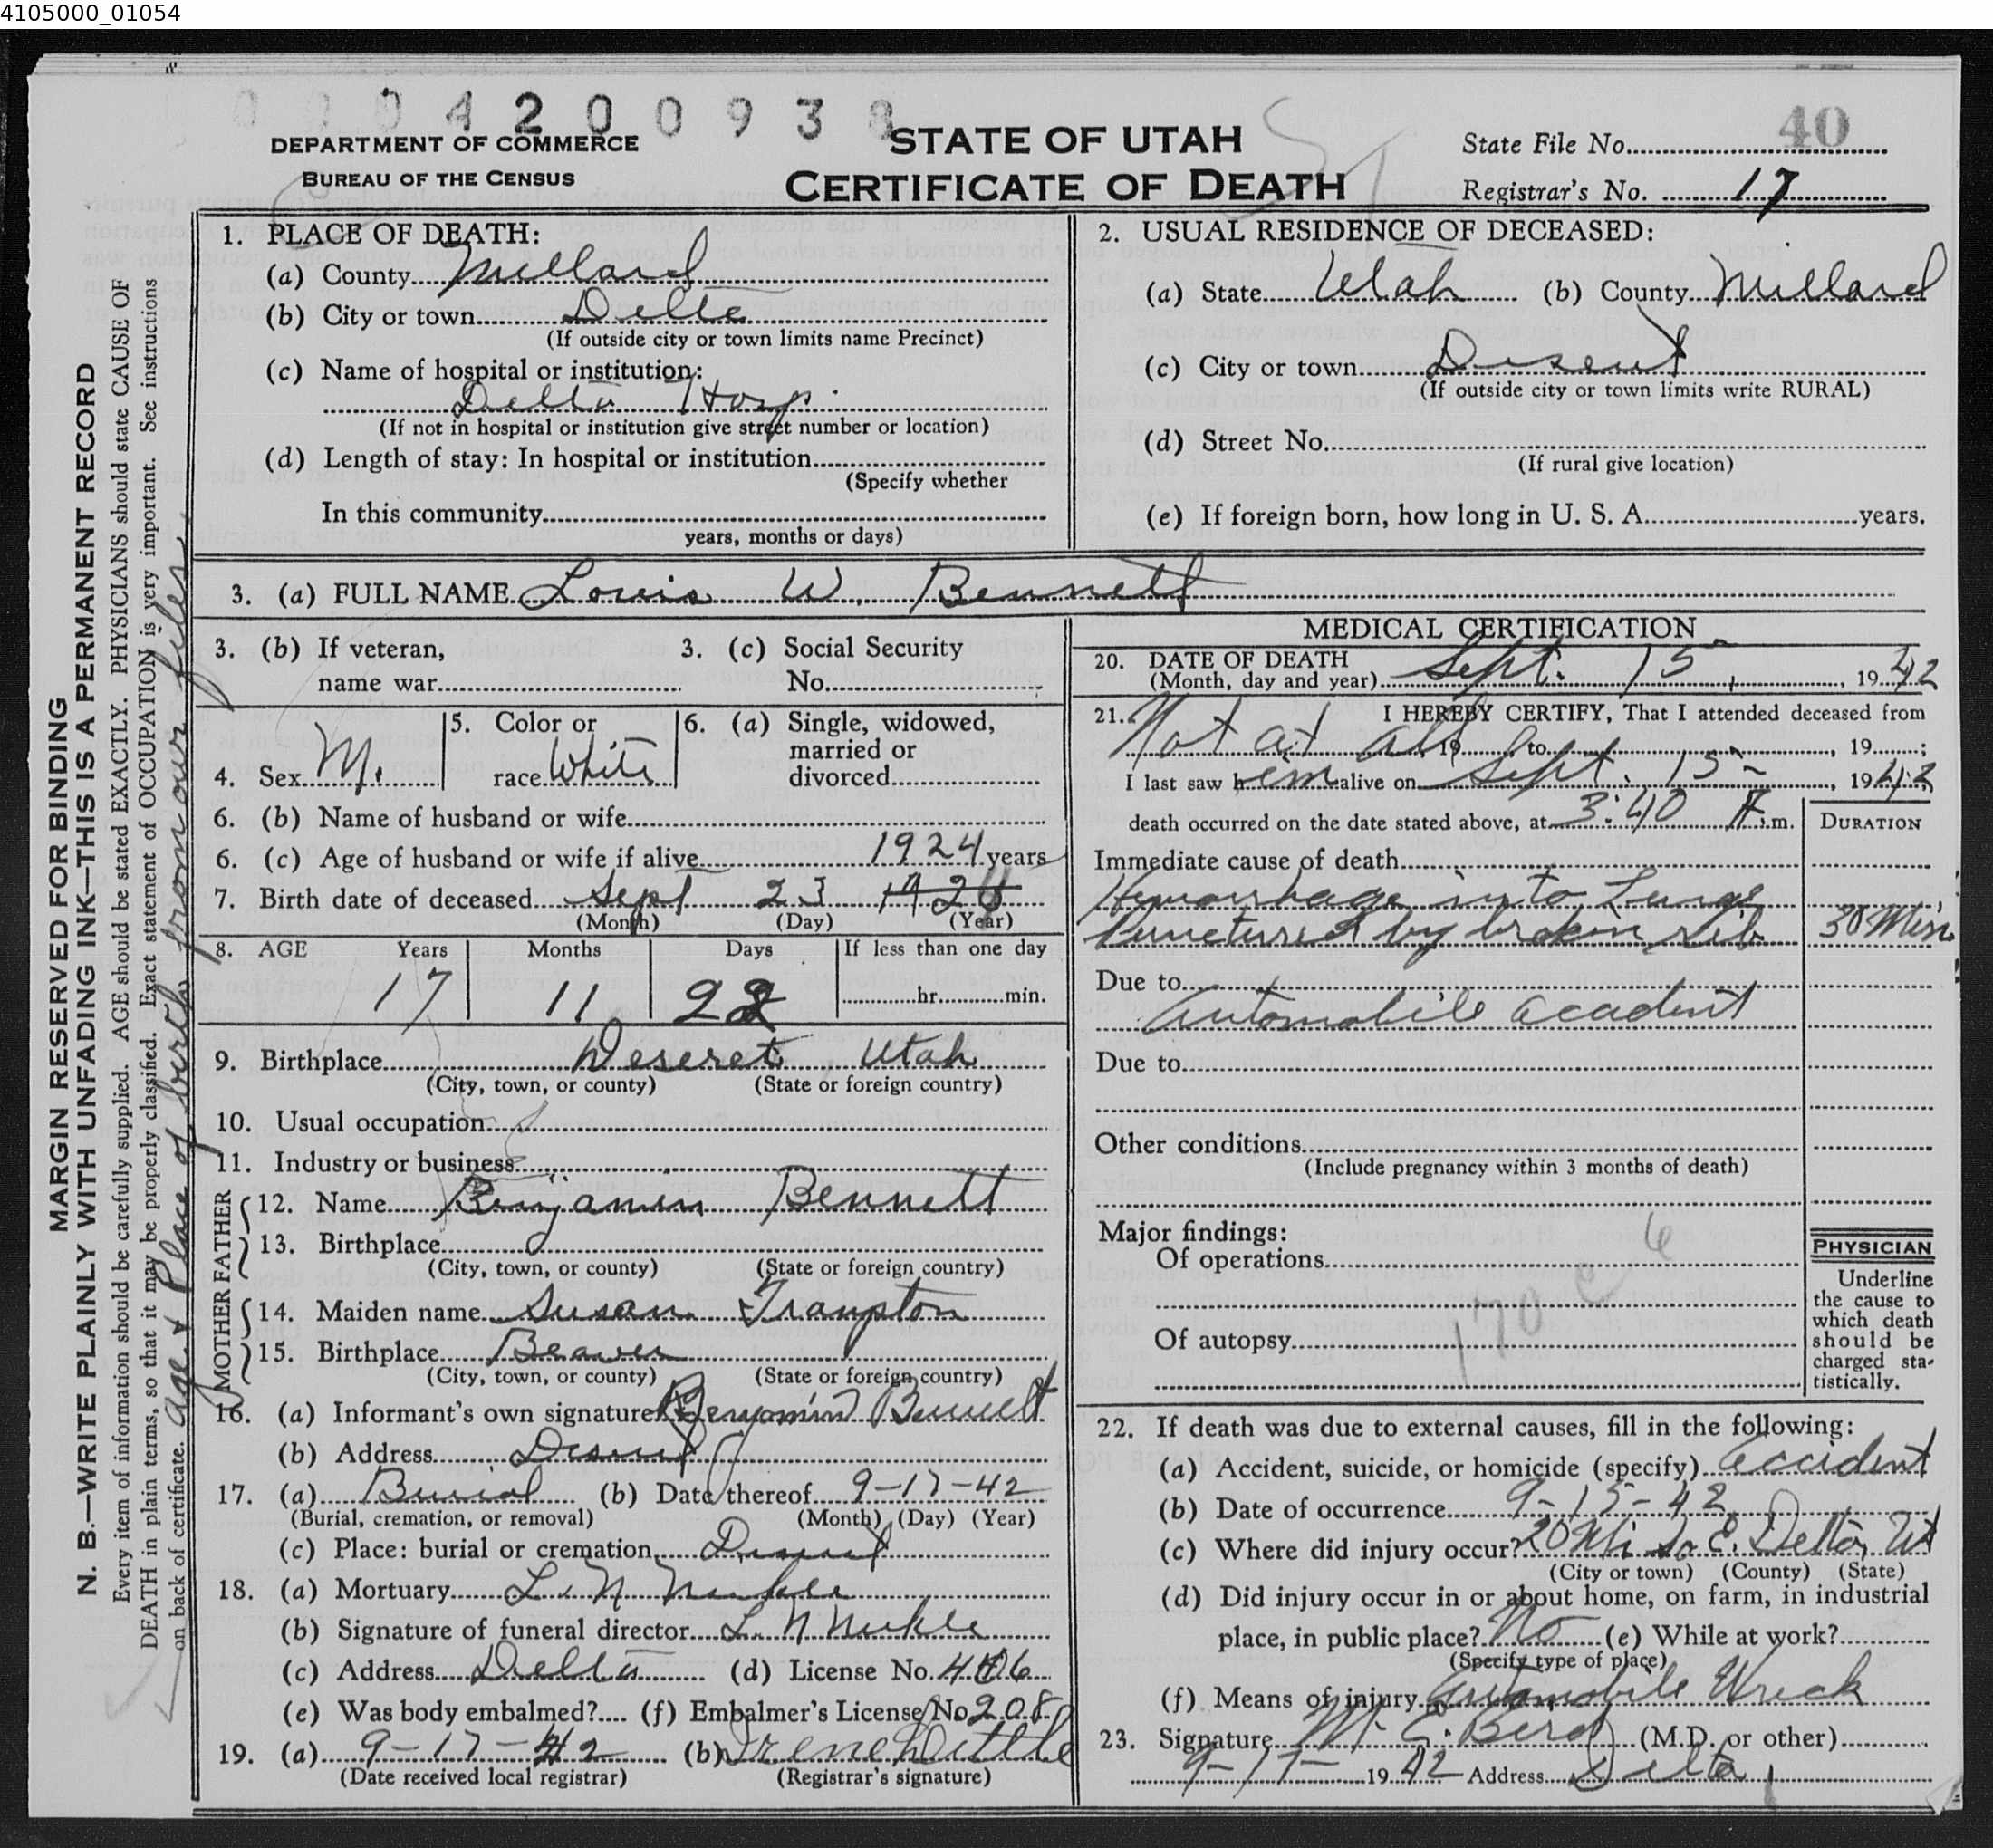 4105000_01054
0004200938
DEPARTMENT OF COMMERCE
BUREAU OF THE CENSUS
STATE OF UTAH
CERTIFICATE OF DEATH
State File No. 40
Registrar's No. 17
1. PLACE OF DEATH:
(a) County Millard
(b) City or town Delta
(If outside city or town limits name Precinct)
(c) Name of hospital or institution:
Delta Hosp.
(If not in hospital or institution give street number or location)
(d) Length of stay: In hospital or institution
(Specify whether
In this community
years, months or days)
2. USUAL RESIDENCE OF DECEASED:
(a) State Utah (b) County Millard
(c) City or town Deseret
(If outside city or town limits write RURAL)
(d) Street No.
(If rural give location)
(e) If foreign born, how long in U. S. A. years.
3. (a) FULL NAME Louis W. Bennett
3. (b) If veteran,
name war
3. (c) Social Security
No.
4. Sex M.
5. Color or
race White
6. (a) Single, widowed,
married or
divorced
6. (b) Name of husband or wife
6. (c) Age of husband or wife if alive 1924 years
7. Birth date of deceased Sept 23 1928
(Month) (Day) (Year)
8. AGE Years Months Days If less than one day
17 11 22 hr. min.
9. Birthplace Deseret, Utah
(City, town, or county) (State or foreign country)
10. Usual occupation
11. Industry or business
FATHER
12. Name Benjamin Bennett
13. Birthplace
(City, town, or county) (State or foreign country)
MOTHER
14. Maiden name Susan
15. Birthplace Beaver
(City, town, or county) (State or foreign country)
16. (a) Informant's own signature Benjamin Bennett
(b) Address Deseret
17. (a) Burial (b) Date thereof 9-17-42
(Burial, cremation, or removal) (Month) (Day) (Year)
(c) Place: burial or cremation Deseret
18. (a) Mortuary L. N.
(b) Signature of funeral director L. N.
(c) Address Delta (d) License No. 406
(e) Was body embalmed? (f) Embalmer's License No 208
19. (a) 9-17-42 (b) Irene
(Date received local registrar) (Registrar's signature)
MEDICAL CERTIFICATION
20. DATE OF DEATH
(Month, day and year) Sept. 15, 1942
21. I HEREBY CERTIFY, That I attended deceased from
Not at all 19 to , 19 ;
I last saw him alive on Sept. 15 , 1942
death occurred on the date stated above, at 3:40 A.m.
DURATION
Immediate cause of death
Hemorrhage into Lungs
Punctured by broken rib 30 Min
Due to
Automobile acadent
Due to
Other conditions
(Include pregnancy within 3 months of death)
Major findings:
Of operations
170 c 6
Of autopsy
PHYSICIAN
Underline
the cause to
which death
should be
charged sta-
tistically.
22. If death was due to external causes, fill in the following:
(a) Accident, suicide, or homicide (specify) Accident
(b) Date of occurrence 9-15-42
(c) Where did injury occur? 20 Mi So E. Delta, Ut
(City or town) (County) (State)
(d) Did injury occur in or about home, on farm, in industrial
place, in public place? No (e) While at work?
(Specify type of place)
(f) Means of injury Automobile Wreck
23. Signature M. E. Bird (M.D. or other)
9-17- 1942 Address Delta
MARGIN RESERVED FOR BINDING
N. B.—WRITE PLAINLY WITH UNFADING INK—THIS IS A PERMANENT RECORD
Every item of information should be carefully supplied. AGE should be stated EXACTLY. PHYSICIANS should state CAUSE OF
DEATH in plain terms, so that it may be properly classified. Exact statement of OCCUPATION is very important. See instructions
on back of certificate. Age & Place of birth from our files